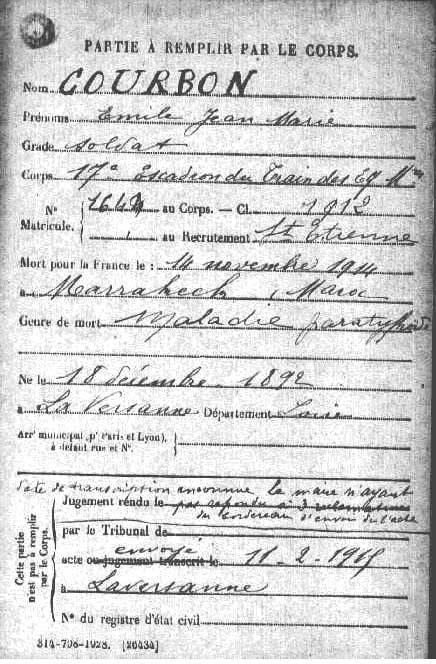 PARTIE À REMPLIR PAR LE CORPS.
Nom COURBON
Prénoms Emile Jean Marie
Grade soldat
Corps 17e Escadron du Train des Eq Mres
N° Matricule. 1642 au Corps. — Cl. 1912
au Recrutement St Etienne
Mort pour la France le : 14 novembre 1914
à Marrakech, Maroc
Genre de mort Maladie paratyphoïde
Né le 18 décembre 1892
à La Versanne Département Loire
Arrt municipal (pr Paris et Lyon), à défaut rue et N°.
Cette partie n'est pas à remplir par le Corps.
date de transcription inconnue le maire n'ayant
Jugement rendu le pas répondu à 3 réclamations
du bordereau d'envoi de l'acte
par le Tribunal de
envoyé
acte ou jugement transcrit le 11-2-1915
à Laversanne
N° du registre d'état civil
314-708-1923. [26434]